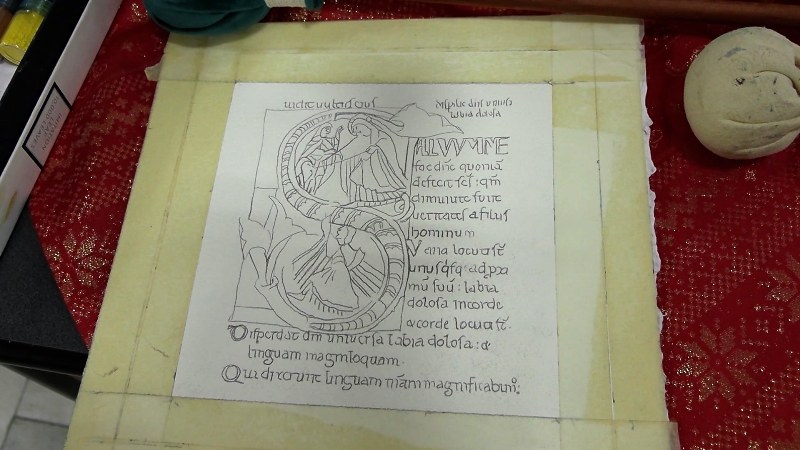 labia dolosa
SALVVMME
fac dn̄e quoniā
defecit sc̄s: qm̄
diminute sunt
ueritates afilius
hominum
Vana locuti st̄
unusq̇sq; adpxī
mū suū: labia
dolosa incorde
&corde locuti st̄.
Disperdat dn̄s uniuersa labia dolosa: &
linguam magniloquam.
Qui dixerunt linguam nr̄am magnificabim;